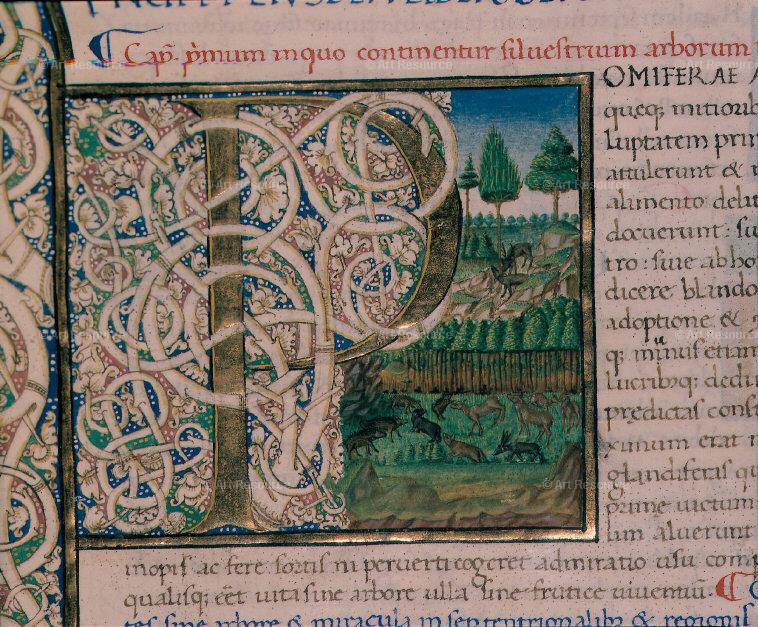 Cap̄ p̄mum in quo continentur siluestrium arborum
POMIFERAE
queq; mitiorib
luptatem prim
attulerunt &
alimento
docuerunt : siu
tro : siue ab ho
dicere blando
adoptione &
q; minus etiam
lucribq; dedi
prędictas conf
ximum erat
glandiferas qu
prime uictum
um aluerunt
inopis ac fere sortis ni peruerti cogeret admiratio usu comp
qualisq; eēt uita sine arbore ulla sine frutice uiuentiū.
tes sine arbore & miracula in septentrionalib; & regionis